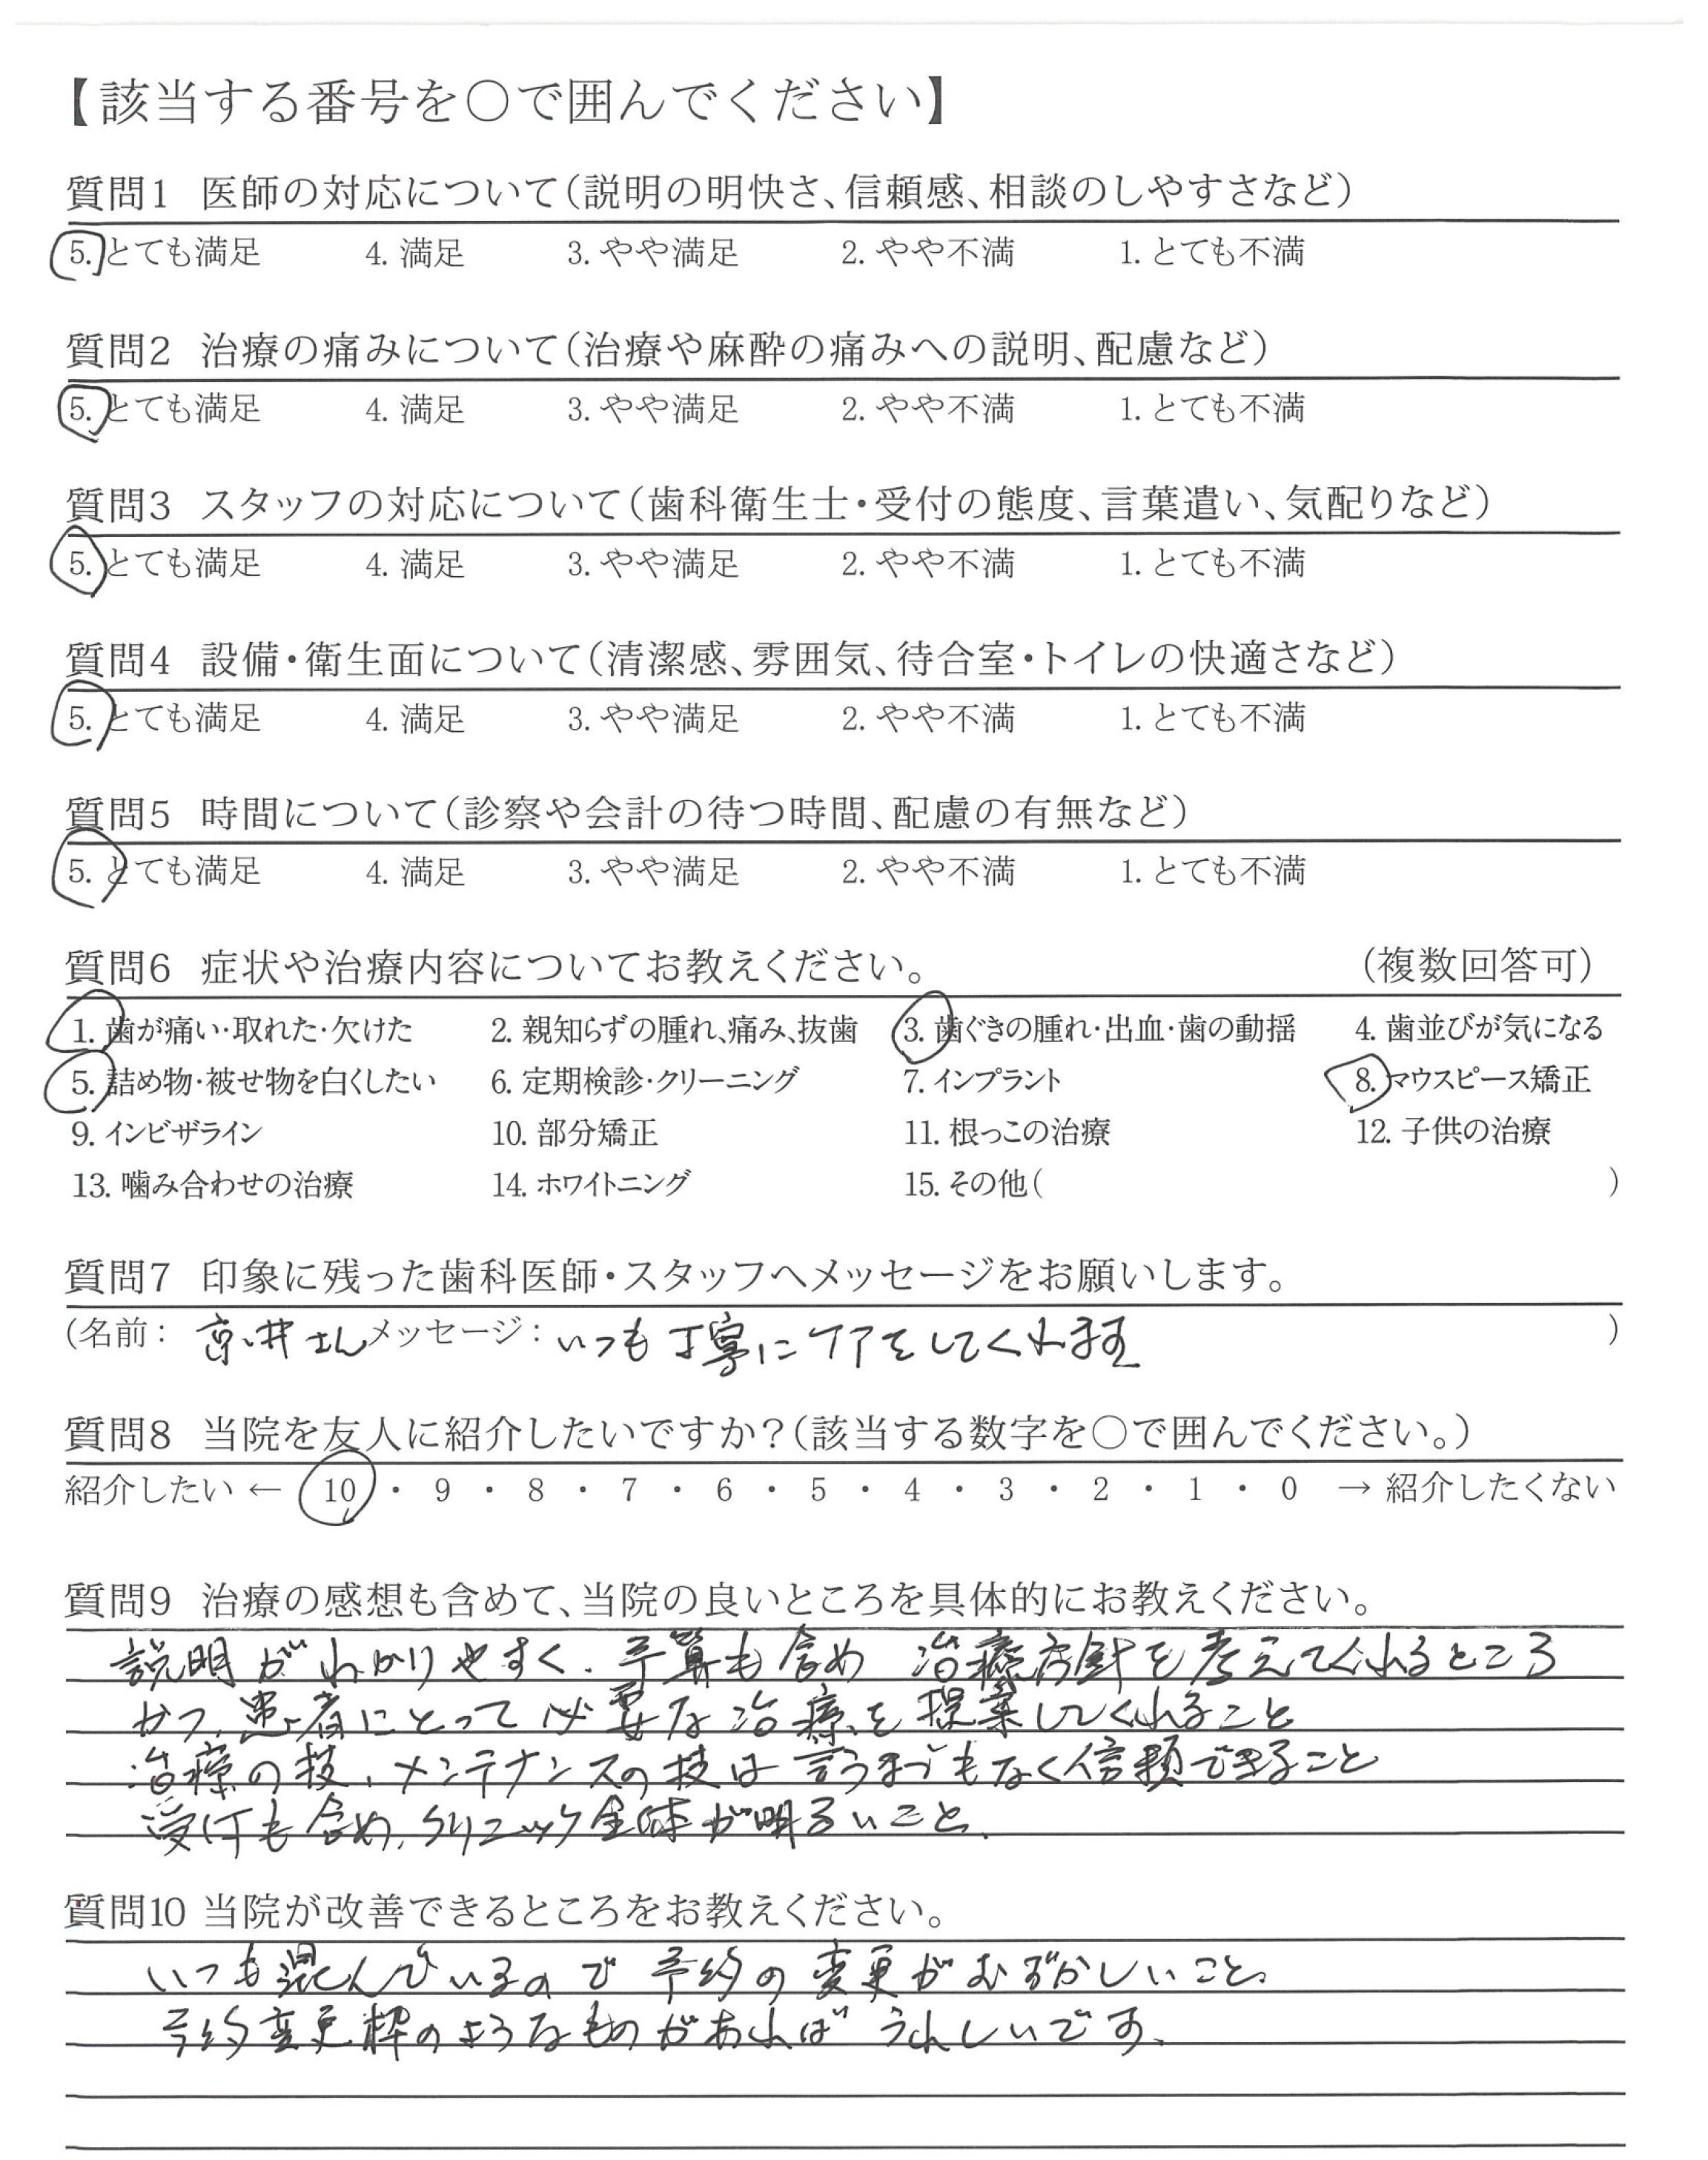 【該当する番号を○で囲んでください】
質問1 医師の対応について(説明の明快さ、信頼感、相談のしやすさなど)
5. とても満足 4. 満足 3. やや満足 2. やや不満 1. とても不満
質問2 治療の痛みについて(治療や麻酔の痛みへの説明、配慮など)
5. とても満足 4. 満足 3. やや満足 2. やや不満 1. とても不満
質問3 スタッフの対応について(歯科衛生士・受付の態度、言葉遣い、気配りなど)
5. とても満足 4. 満足 3. やや満足 2. やや不満 1. とても不満
質問4 設備・衛生面について(清潔感、雰囲気、待合室・トイレの快適さなど)
5. とても満足 4. 満足 3. やや満足 2. やや不満 1. とても不満
質問5 時間について(診察や会計の待つ時間、配慮の有無など)
5. とても満足 4. 満足 3. やや満足 2. やや不満 1. とても不満
質問6 症状や治療内容についてお教えください。 (複数回答可)
1. 歯が痛い・取れた・欠けた 2. 親知らずの腫れ、痛み、抜歯 3. 歯ぐきの腫れ・出血・歯の動揺 4. 歯並びが気になる
5. 詰め物・被せ物を白くしたい 6. 定期検診・クリーニング 7. インプラント 8. マウスピース矯正
9. インビザライン 10. 部分矯正 11. 根っこの治療 12. 子供の治療
13. 噛み合わせの治療 14. ホワイトニング 15. その他( )
質問7 印象に残った歯科医師・スタッフへメッセージをお願いします。
(名前: 井さん メッセージ: いつも丁寧にケアをしてくれます )
質問8 当院を友人に紹介したいですか?(該当する数字を○で囲んでください。)
紹介したい ← 10 ・ 9 ・ 8 ・ 7 ・ 6 ・ 5 ・ 4 ・ 3 ・ 2 ・ 1 ・ 0 → 紹介したくない
質問9 治療の感想も含めて、当院の良いところを具体的にお教えください。
説明がわかりやすく、予算も含め 治療方針を考えてくれるところ
かつ、患者にとって必要な治療を提案してくれること
治療の技、メンテナンスの技は言うまでもなく信頼できること
受付も含め、クリニック全体が明るいこと、
質問10 当院が改善できるところをお教えください。
いつも混んでいるので 予約の変更がむずかしいこと。
予約変更枠のようなものがあれば うれしいです、